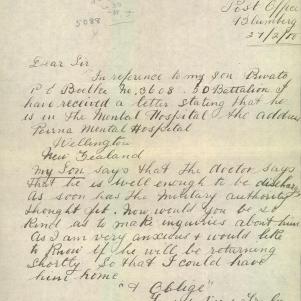 5088
Post Office
Blumberg
Dear Sir
In reference to my Son Private
No. 3608. 50 Battalion I
have received a letter stating that he
is in the Mental Hospital. the address
Porirua Mental Hospital
Wellington
New Zealand
My Son says that the doctor says
that he is well enough to be discharg
as soon has the Military authority
thought fit. Now would you be so
Kind as to make inquiries about him
as I am very anxious & would like
to know if he will be returning
shortly So that I could have
him home
"& Oblige"